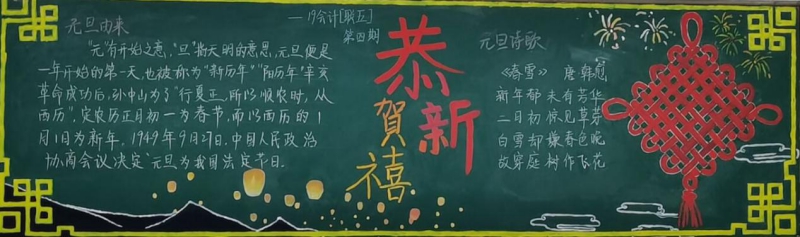 元旦由来
—19会计[联五]
第四期
"元"有开始之意,"旦"指天明的意思,元旦便是
一年开始的第一天,也被称为"新历年""阳历年"辛亥
革命成功后,孙中山为了"行夏正,所以顺农时,从
西历",定农历正月初一为春节,而以西历的1
月1日为新年。1949年9月27日,中国人民政治
协商会议决定"元旦为我国法定节日。
恭
賀
新
禧
元旦诗歌
《春雪》 唐 韩愈
新年都未有芳华
二月初惊见草芽
白雪却嫌春色晚
故穿庭树作飞花